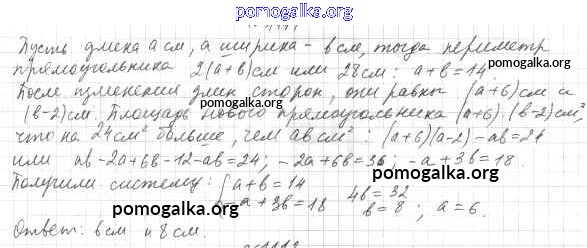 pomogalka.org
Пусть длина a см, а ширина - b см, тогда периметр
прямоугольника 2(a+b)см или 28см: a+b=14.
pomogalka.org
После изменения длин сторон, они равны (a+6)см и
(b-2)см. Площадь нового прямоугольника (a+6)·(b-2)см²,
что на 24см² больше, чем ab см²: (a+6)(a-2)-ab=24
или ab-2a+6b-12-ab=24; -2a+6b=36; -a+3b=18.
pomogalka.org
Получили систему: { a+b=14 4b=32
-a+3b=18 b=8; a=6.
pomogalka.org
pomogalka.org
Ответ: 6см и 8см.